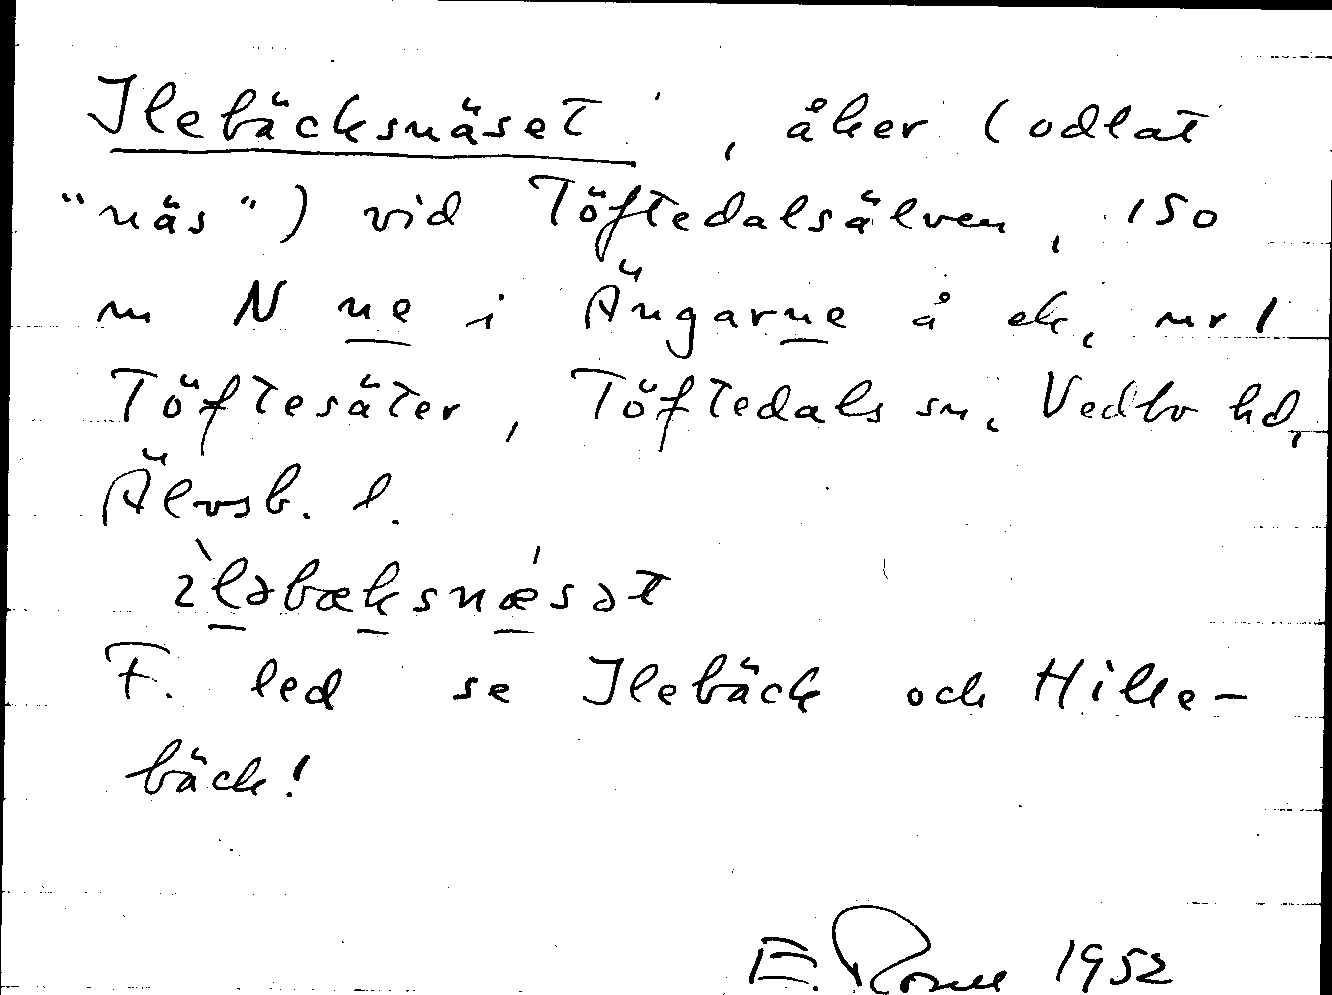 Ilebäcksnäset, åker (odlat
"näs") vid Töftedalsälven, 150
m N ne i Ängarne å ek. nr 1
Töftesäter, Töftedals sn. Vedbo hd,
Älvsb. l.
ìləbæksnǽsət
F. led se Ilebäck och Hille-
bäck!
E. 1952